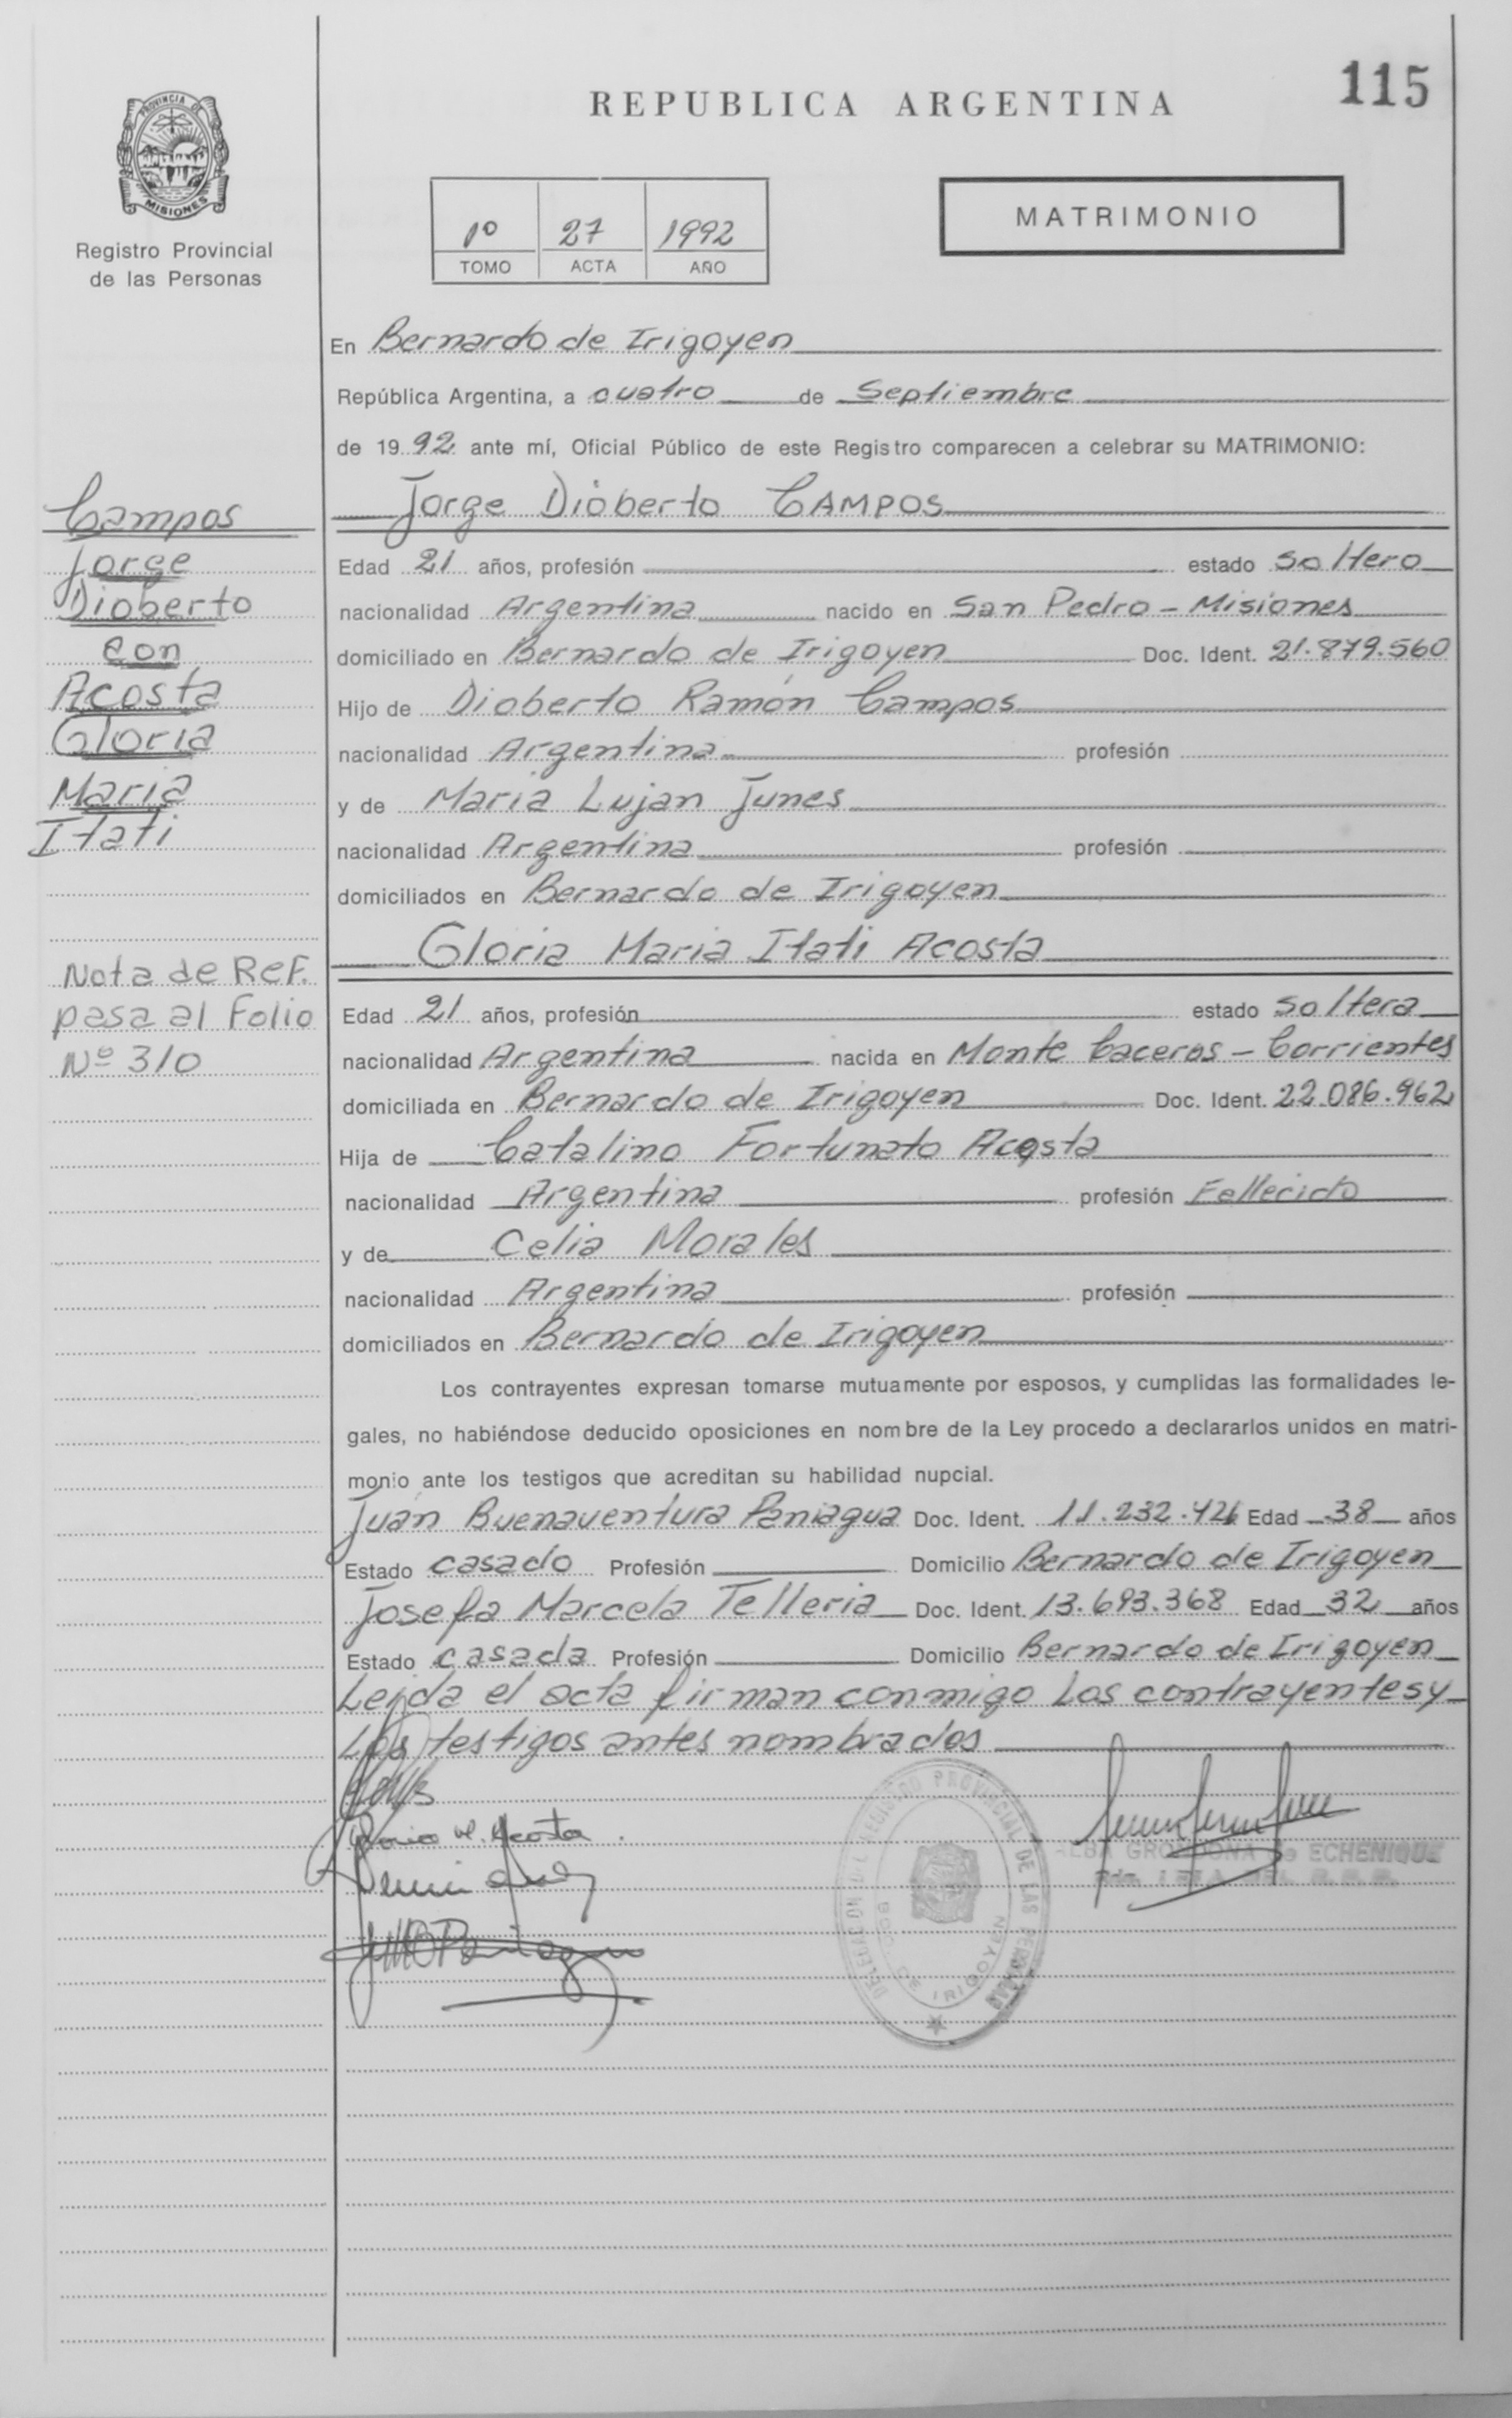 115
REPUBLICA ARGENTINA
PROVINCIA DE
MISIONES
Registro Provincial
de las Personas
1º 27 1992
TOMO ACTA AÑO
MATRIMONIO
En Bernardo de Irigoyen
República Argentina, a cuatro de Septiembre
de 1992 ante mí, Oficial Público de este Registro comparecen a celebrar su MATRIMONIO:
Jorge Dioberto CAMPOS
Edad 21 años, profesión estado soltero
nacionalidad Argentina nacido en San Pedro - Misiones
domiciliado en Bernardo de Irigoyen Doc. Ident. 21.879.560
Hijo de Dioberto Ramón Campos
nacionalidad Argentina profesión
y de Maria Lujan Junes
nacionalidad Argentina profesión
domiciliados en Bernardo de Irigoyen
Gloria Maria Itati Acosta
Edad 21 años, profesión estado soltera
nacionalidad Argentina nacida en Monte Caceros - Corrientes
domiciliada en Bernardo de Irigoyen Doc. Ident. 22.086.962
Hija de Catalino Fortunato Acosta
nacionalidad Argentina profesión Fallecido
y de Celia Morales
nacionalidad Argentina profesión
domiciliados en Bernardo de Irigoyen
Los contrayentes expresan tomarse mutuamente por esposos, y cumplidas las formalidades le-
gales, no habiéndose deducido oposiciones en nombre de la Ley procedo a declararlos unidos en matri-
monio ante los testigos que acreditan su habilidad nupcial.
Juan Buenaventura Paniagua Doc. Ident. 11.232.426 Edad 38 años
Estado casado Profesión Domicilio Bernardo de Irigoyen
Josefa Marcela Telleria Doc. Ident. 13.693.368 Edad 32 años
Estado casada Profesión Domicilio Bernardo de Irigoyen
Leida el acta firman conmigo los contrayentes y
los testigos antes nombrados
Campos
Jorge
Dioberto
con
Acosta
Gloria
Maria
Itati
Nota de Ref.
pasa al Folio
Nº 310
Gloria M. Acosta
DELEGACION DEL REGISTRO PROVINCIAL DE LAS PERSONAS
BDO. DE IRIGOYEN
ALBA GRONDONA de ECHENIQUE